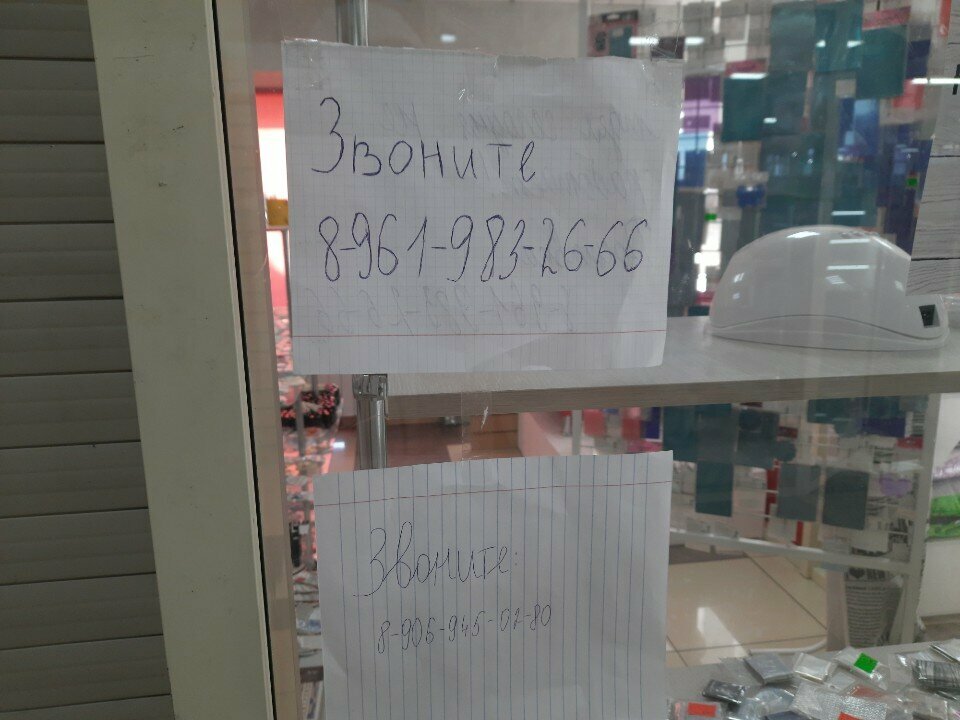 Звоните
8-961-983-26-66
Звоните:
8-906-945-01-80